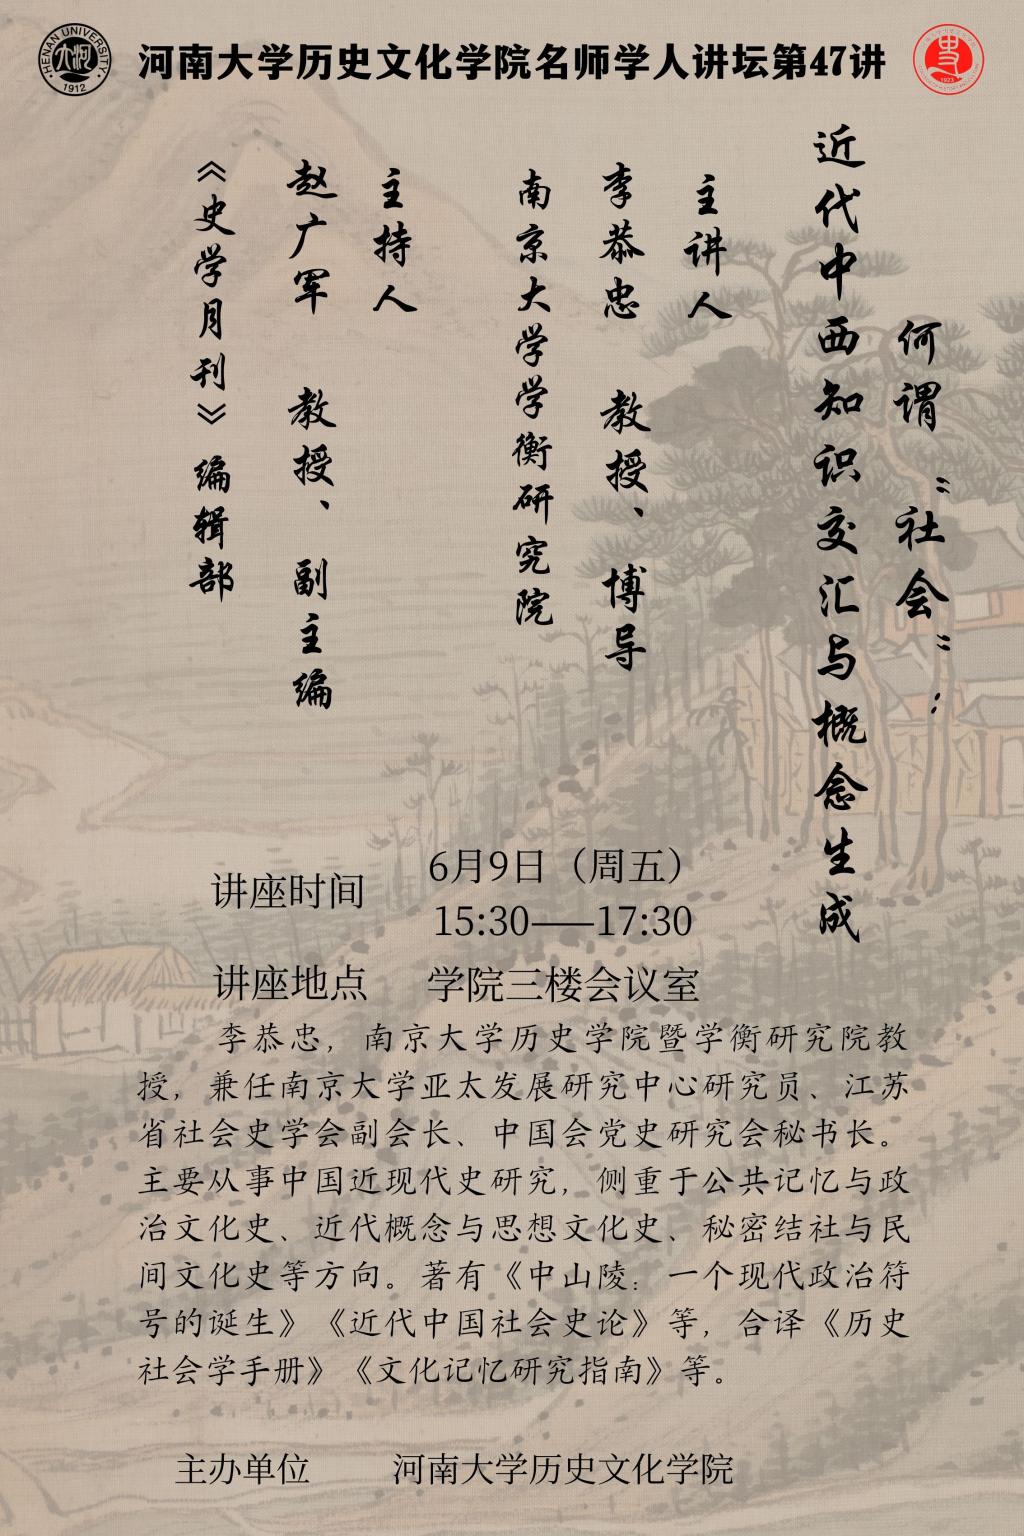 HENAN UNIVERSITY
1912
河南大学历史文化学院名师学人讲坛第47讲
1923
何谓“社会”：
近代中西知识交汇与概念生成
主讲人
李恭忠 教授、博导
南京大学学衡研究院
主持人
赵广军 教授、副主编
《史学月刊》编辑部
讲座时间
6月9日（周五）
15:30——17:30
讲座地点 学院三楼会议室
李恭忠，南京大学历史学院暨学衡研究院教
授，兼任南京大学亚太发展研究中心研究员、江苏
省社会史学会副会长、中国会党史研究会秘书长。
主要从事中国近现代史研究，侧重于公共记忆与政
治文化史、近代概念与思想文化史、秘密结社与民
间文化史等方向。著有《中山陵：一个现代政治符
号的诞生》《近代中国社会史论》等，合译《历史
社会学手册》《文化记忆研究指南》等。
主办单位 河南大学历史文化学院